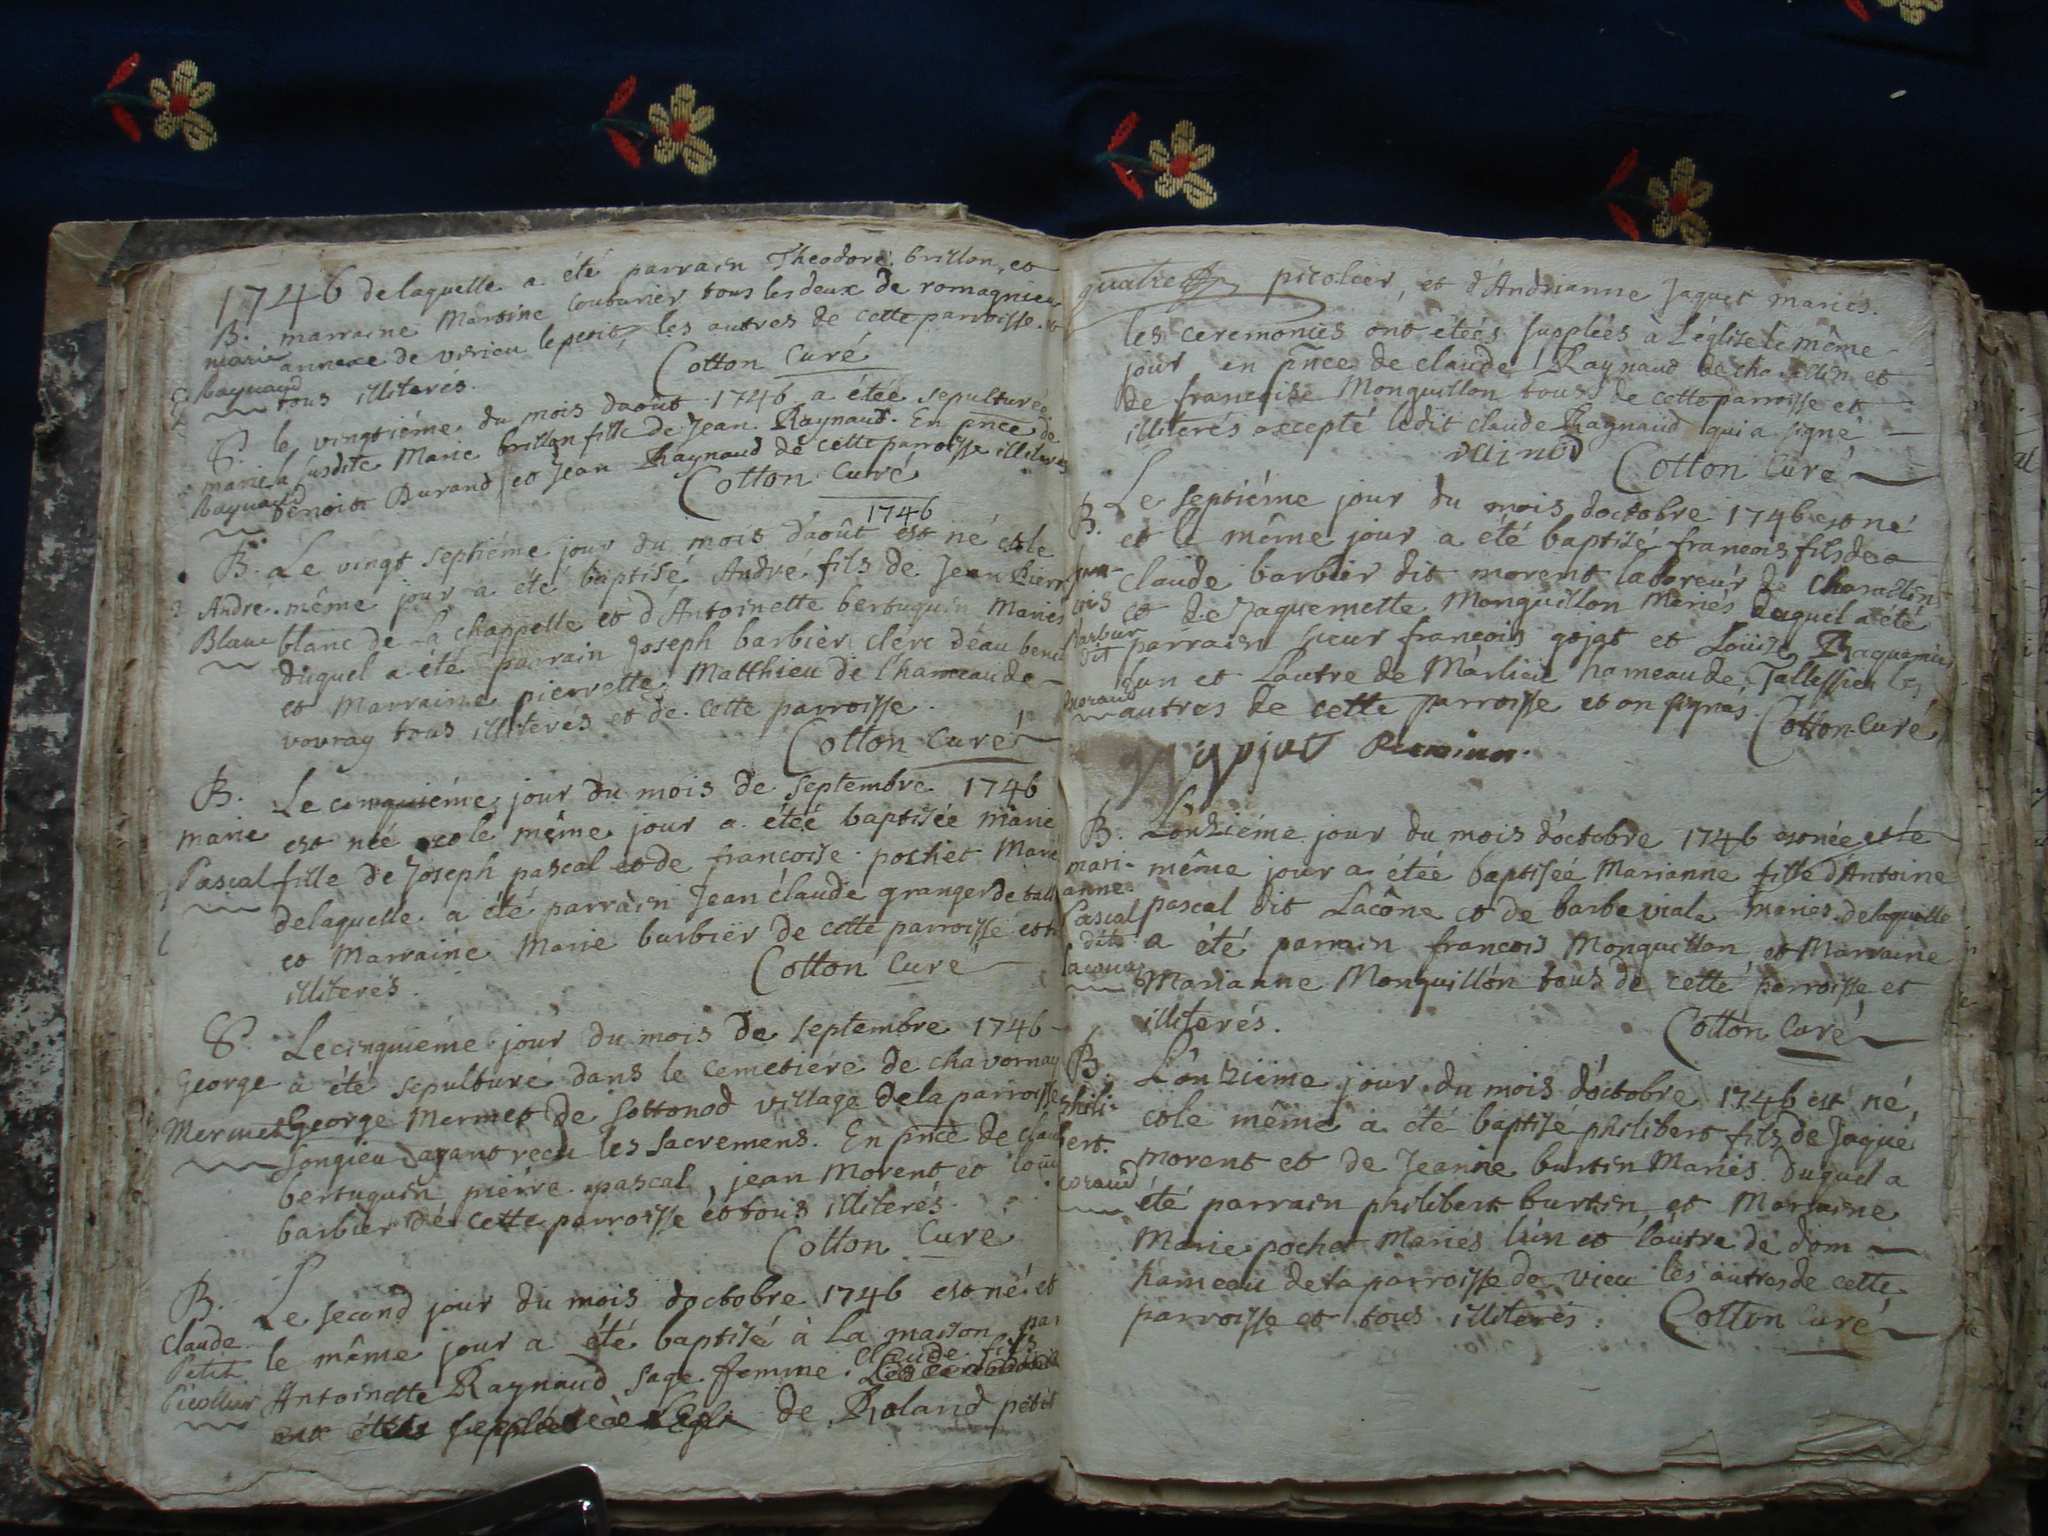 1746 delaquelle a été parrain Theodore brillon, et
B. marraine Martine Couturier tous les deux de romagnieu
marie annexe de virieu le petit, les autres de cette parroisse et
Raynaud tous illiterés.
Cotton Curé
S. le vingtiéme du mois daoût 1746 a étée sepulturée
marie la susdite Marie brillon fille de Jean Raynaud. En pnce de
Raynaud benoit Durand et Jean Raynaud de cette parroisse illiterés
Cotton Curé
1746
B. Le vingt septiéme jour du mois daoût est né et le
Andre même jour a été baptisé André fils de Jean Pierre
Blanc blanc de La chappelle et d'Antoinette bertuquin Mariés
duquel a été parrain Joseph barbier clerc d'eau benite
et Marraine pierrette Matthieu de l'hameau de
vovray tous illiterés et de cette parroisse.
Cotton Curé
B. Le cinquiéme jour du mois de septembre 1746
marie est née et le même jour a étée baptisée marie
Pascal fille de Joseph pascal et de françoise pochet Mariés
delaquelle a été parrain Jean claude granger de
et Marraine Marie barbier de cette parroisse et
illiterés.
Cotton Curé
S. Le cinquiéme jour du mois de septembre 1746
George a été sepulturé dans le cemetiére de chavornay
Mermet George Mermet de sottonod village de la parroisse
songieu ayant recu les sacremens. En pnce de
bertuquin pierre pascal, jean Morent et
barbier de cette parroisse et tous illiterés.
Cotton Curé
B. Le second jour du mois doctobre 1746 est né et
Claude le même jour a été baptisé à la maison par
Petit Antoinette Raynaud sage femme. Claude fils
Picolier de Roland petit
quatre picolier, et d'Andrianne Jaquet mariés.
les ceremonies ont étées suppléés à L'église le même
jour en pnce de claude Raynaud de charallin et
de francoise Monquillon tous de cette parroisse et
illiterés excepté ledit claude Raynaud qui a signé
Cotton Curé
B. Le septiéme jour du mois doctobre 1746 est né
et le même jour a été baptisé francois fils de
claude barbier dit morent laboreur de charallin
et de Jaquemette Monquillon Mariés duquel a été
parrain sieur françois gojat et Loüise
lun et Lautre de Marlieu hameau de Tallissieu les
autres de cette parroisse et on signés. Cotton Curé
B. L'onziéme jour du mois d'octobre 1746 est née et le
mari- même jour a étée baptisée Marianne fille d'Antoine
anne Pascal pascal dit Lacône et de barbe viala mariés delaquelle
dit a été parrain francois Monquillon, et Marraine
Marianne Monquillon tous de cette parroisse et
illiterés.
Cotton Curé
B. L'onziéme jour du mois d'octobre 1746 est né,
phili- et le même a été baptisé philibert fils de Jaque
bert. morent et de Jeanne burtin Mariés. Duquel a
été parrain philibert burtin, et Marraine
Marie pochet Mariés l'un et l'autre de dom
hameau de la parroisse de vieu les autres de cette
parroisse et tous illiterés. Cotton Curé